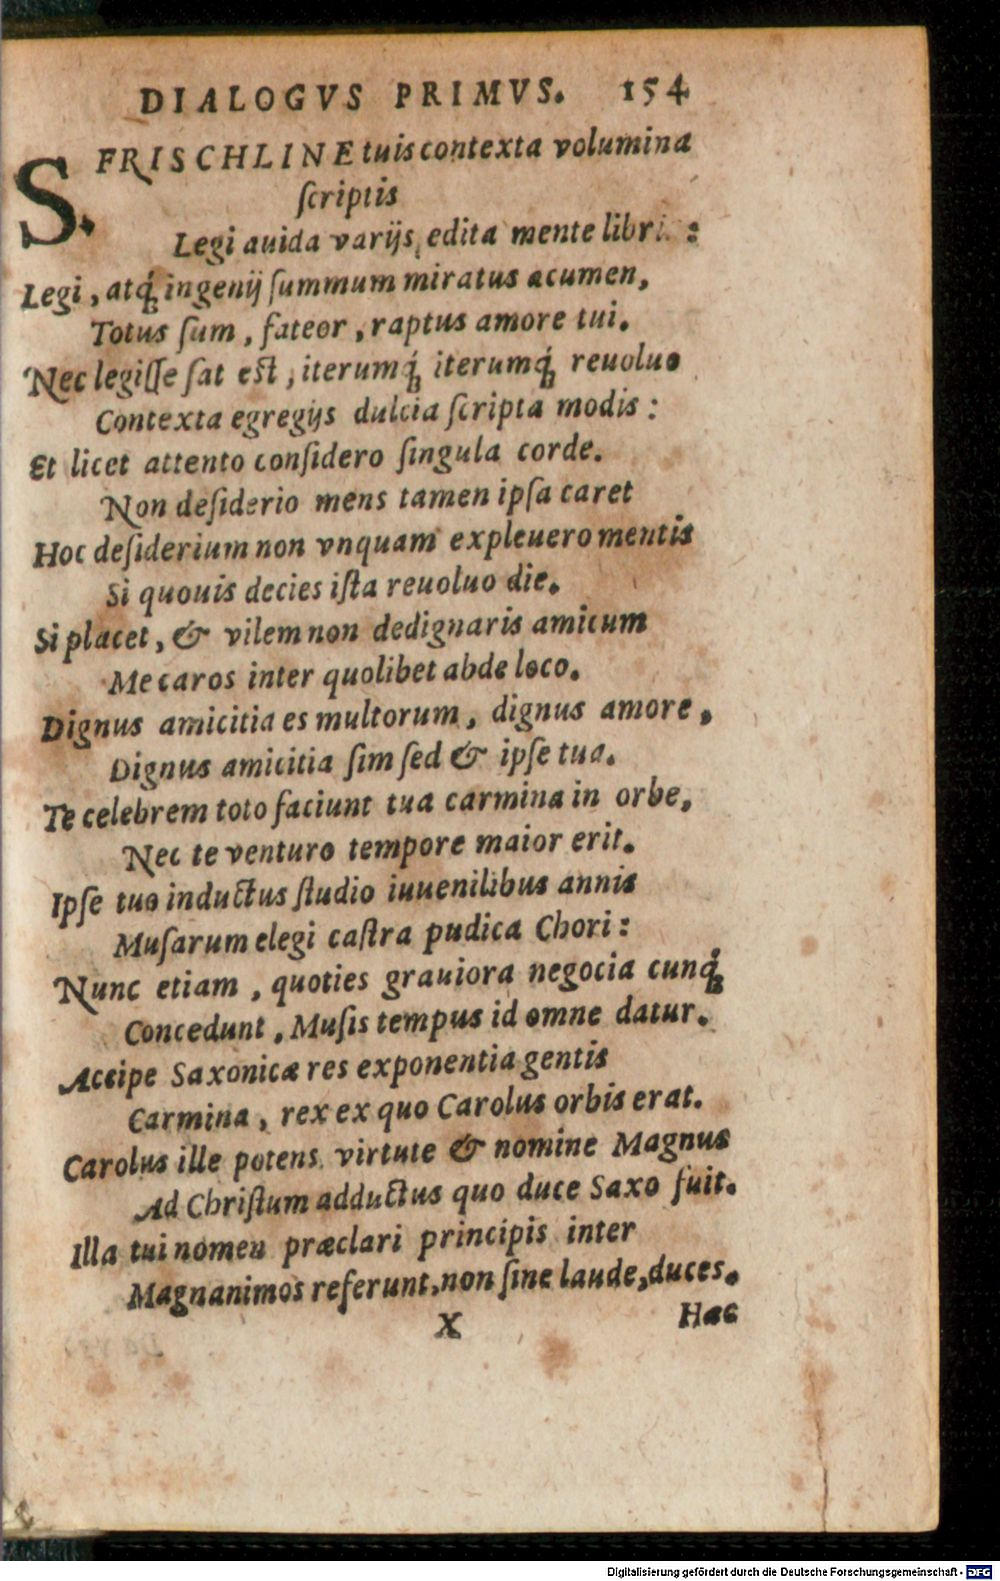 DIALOGVS PRIMVS. 154
S. FRISCHLINE tuis contexta volumina
ſcriptis
Legi auida varijs edita mente libris :
Legi, atq́; ingenij ſummum miratus acumen,
Totus ſum, fateor, raptus amore tui.
Nec legiſſe ſat eſt, iterumq́; iterumq́; reuoluo
Contexta egregijs dulcia ſcripta modis :
Et licet attento conſidero ſingula corde.
Non deſiderio mens tamen ipſa caret
Hoc deſiderium non vnquam expleuero mentis
Si quouis decies iſta reuoluo die.
Si placet, & vilem non dedignaris amicum
Me caros inter quolibet abde loco.
Dignus amicitia es multorum, dignus amore,
Dignus amicitia ſim ſed & ipſe tua.
Te celebrem toto faciunt tua carmina in orbe,
Nec te venturo tempore maior erit.
Ipſe tuo inductus ſtudio iuuenilibus annis
Muſarum elegi caſtra pudica Chori:
Nunc etiam, quoties grauiora negocia cunq́;
Concedunt, Muſis tempus id omne datur.
Accipe Saxonicæ res exponentia gentis
Carmina, rex ex quo Carolus orbis erat.
Carolus ille potens, virtute & nomine Magnus
Ad Chriſtum adductus quo duce Saxo fuit.
Illa tui nomen præclari principis inter
Magnanimos referunt, non ſine laude, duces.
X Hac
Digitalisierung gefördert durch die Deutsche Forschungsgemeinschaft - DFG